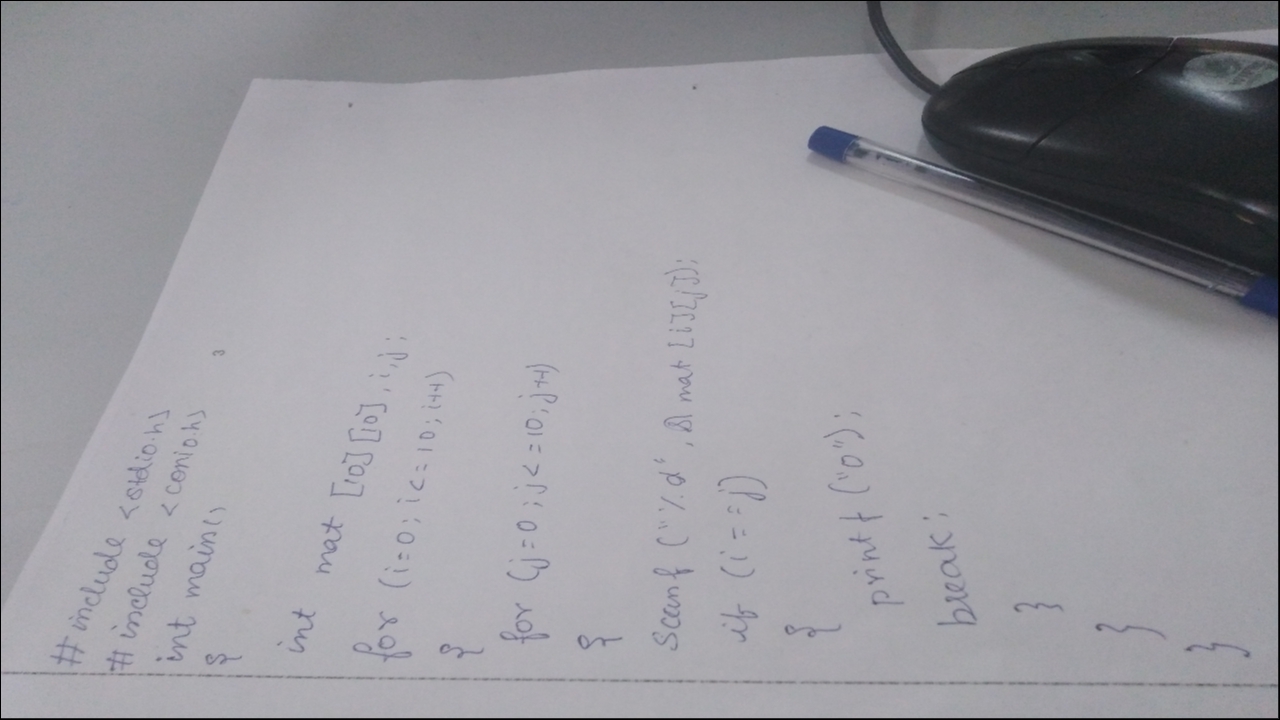 # include <stdio.h>
# include <conio.h>
int main()
{
int mat [10][10], i,j;
for (i=0; i<=10; i++)
{
for (j=0; j<=10; j++)
{
Scanf ("%d", & mat [i][j]);
if (i==j)
{
printf ("0");
break;
}
}
}